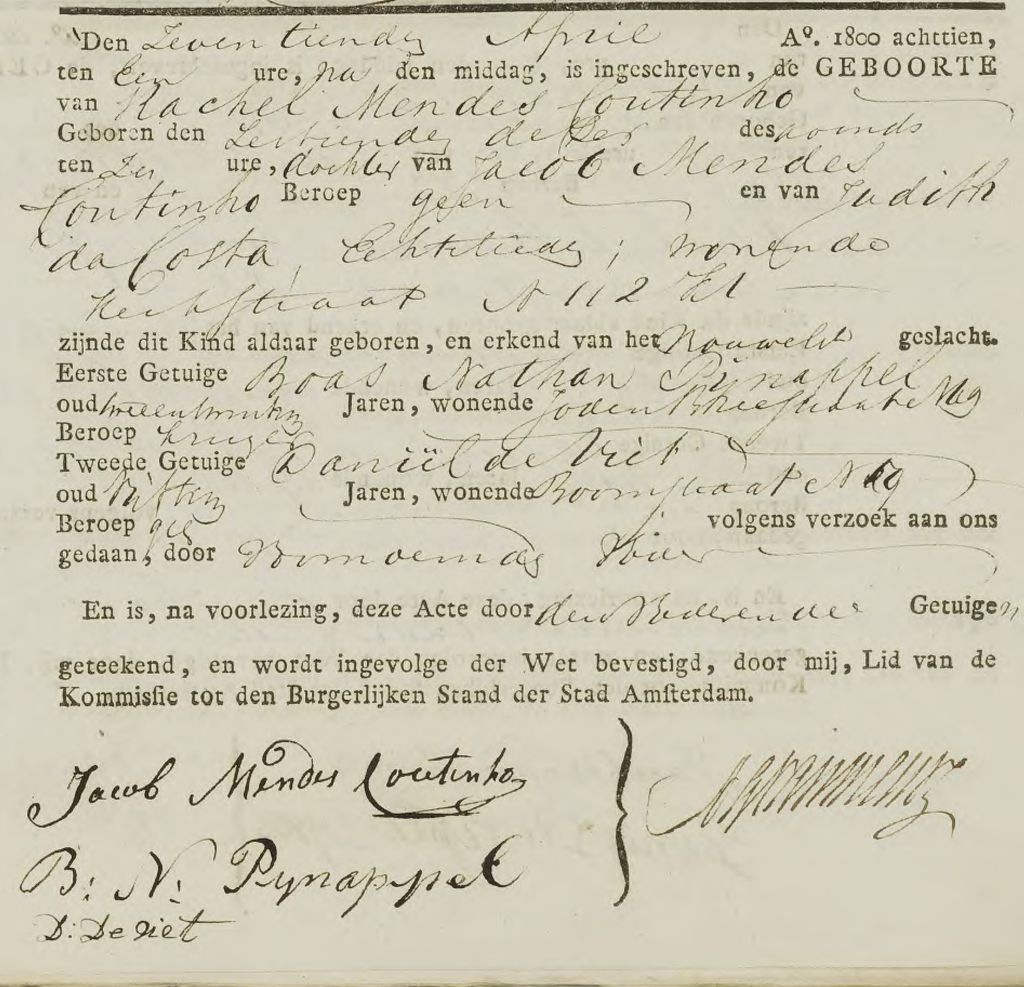 Den Zeventiende April Aº. 1800 achttien,
ten Een ure, na den middag, is ingeschreven, de GEBOORTE
van Rachel Mendes Coutinho
Geboren den Zestiende dezer des avonds
ten ure, dochter van Jacob Mendes
Coutinho Beroep geen en van Judith
da Costa, Echtelieden, wonende
Kerkstraat N 112
zijnde dit Kind aldaar geboren, en erkend van het Vrouwelijk geslacht.
Eerste Getuige Boas Nathan Pijnappel
oud Jaren, wonende Joden Breestraat
Beroep
Tweede Getuige Daniël de Vriet
oud Vijftig Jaren, wonende Boomstraat N
Beroep volgens verzoek aan ons
gedaan, door Vornoemde Vader
En is, na voorlezing, deze Acte door den Vader en de Getuigen
geteekend, en wordt ingevolge der Wet bevestigd, door mij, Lid van de
Kommissie tot den Burgerlijken Stand der Stad Amsterdam.
Jacob Mendes Coutinho
B: N: Pynappel
D: De